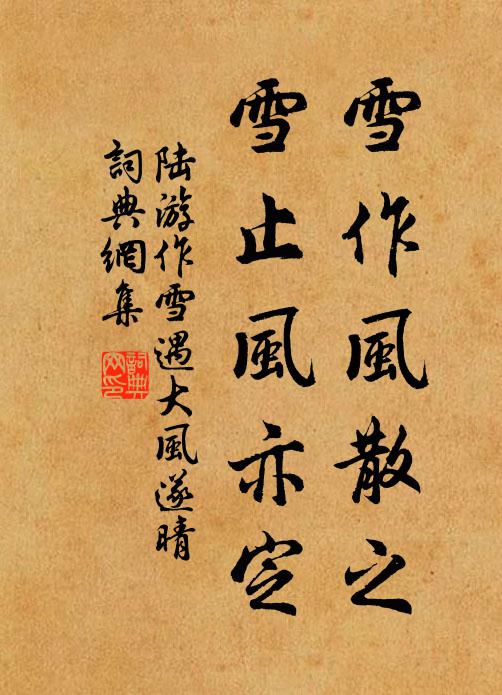 雪作風散之
雪止風亦定
陸游作雪遇大風遂晴
詞典網集
詞典
网印